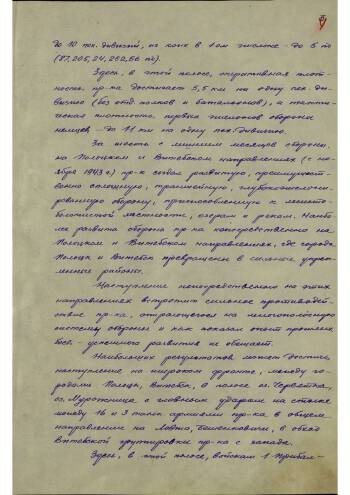 до 10 пех. дивизий, из коих в 1ом эшелоне - до 5 пд
(87, 205, 24, 252, 56 пд).
Здесь, в этой полосе, оперативная плот-
ность пр-ка достигает 5,5 км на одну пех. ди-
визию (без отд. полков и баталионов), а такти-
ческая плотность первых эшелонов обороны
немцев - до 11 км на одну пех. дивизию.
За шесть с лишним месяцев обороны
на Полоцком и Витебском направлениях (с но-
ября 1943 г) пр-к создал развитую, преимущест-
венно сплошную, траншейную, глубокоэшелони-
рованную оборону, приспособленную к лесисто-
болотистой местности, озерам и рекам. Наибо-
лее развита оборона пр-ка непосредственно на
Полоцком и Витебском направлениях, где города
Полоцк и Витебск превращены в сильные укреп-
ленные районы.
Наступление непосредственно на этих
направлениях встретит сильное противодей-
ствие пр-ка, опирающегося на
систему обороны и как показал опыт прошлых
боев - успешного развития не обещает.
Наибольших результатов может достичь
наступление на широком фронте, между го-
родами Полоцк, Витебск, в полосе оз. Червятка,
оз. с главным ударом на стыке
между 16 и 3 танк. армиями пр-ка в общем
направлении на Бешенковичи, в обход
Витебской группировки пр-ка с запада.
Здесь, в этой полосе, войскам 1 Прибал-